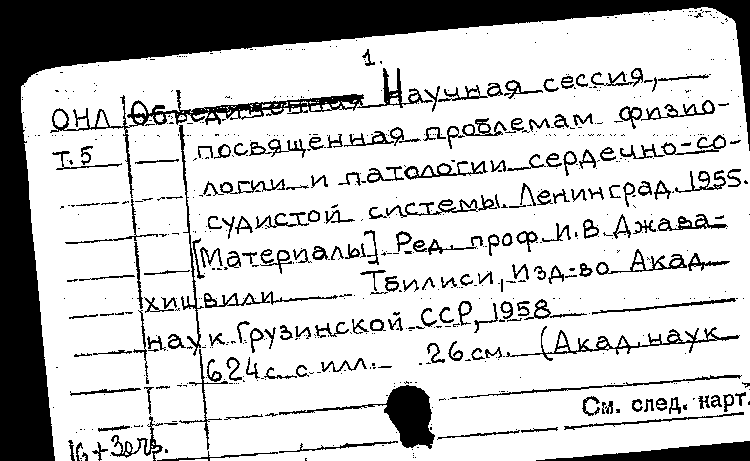 1.
ОНЛ Объединенная Научная сессия,
т.5 посвященная проблемам физио-
логии и патологии сердечно-со-
судистой системы. Ленинград. 1955.
[Материалы]. Ред. проф. И.В. Джава-
хишвили Тбилиси, Изд-во Акад.
наук Грузинской ССР, 1958
624 с. с илл. 26 см. (Акад. наук
См. след. карт.
16+3